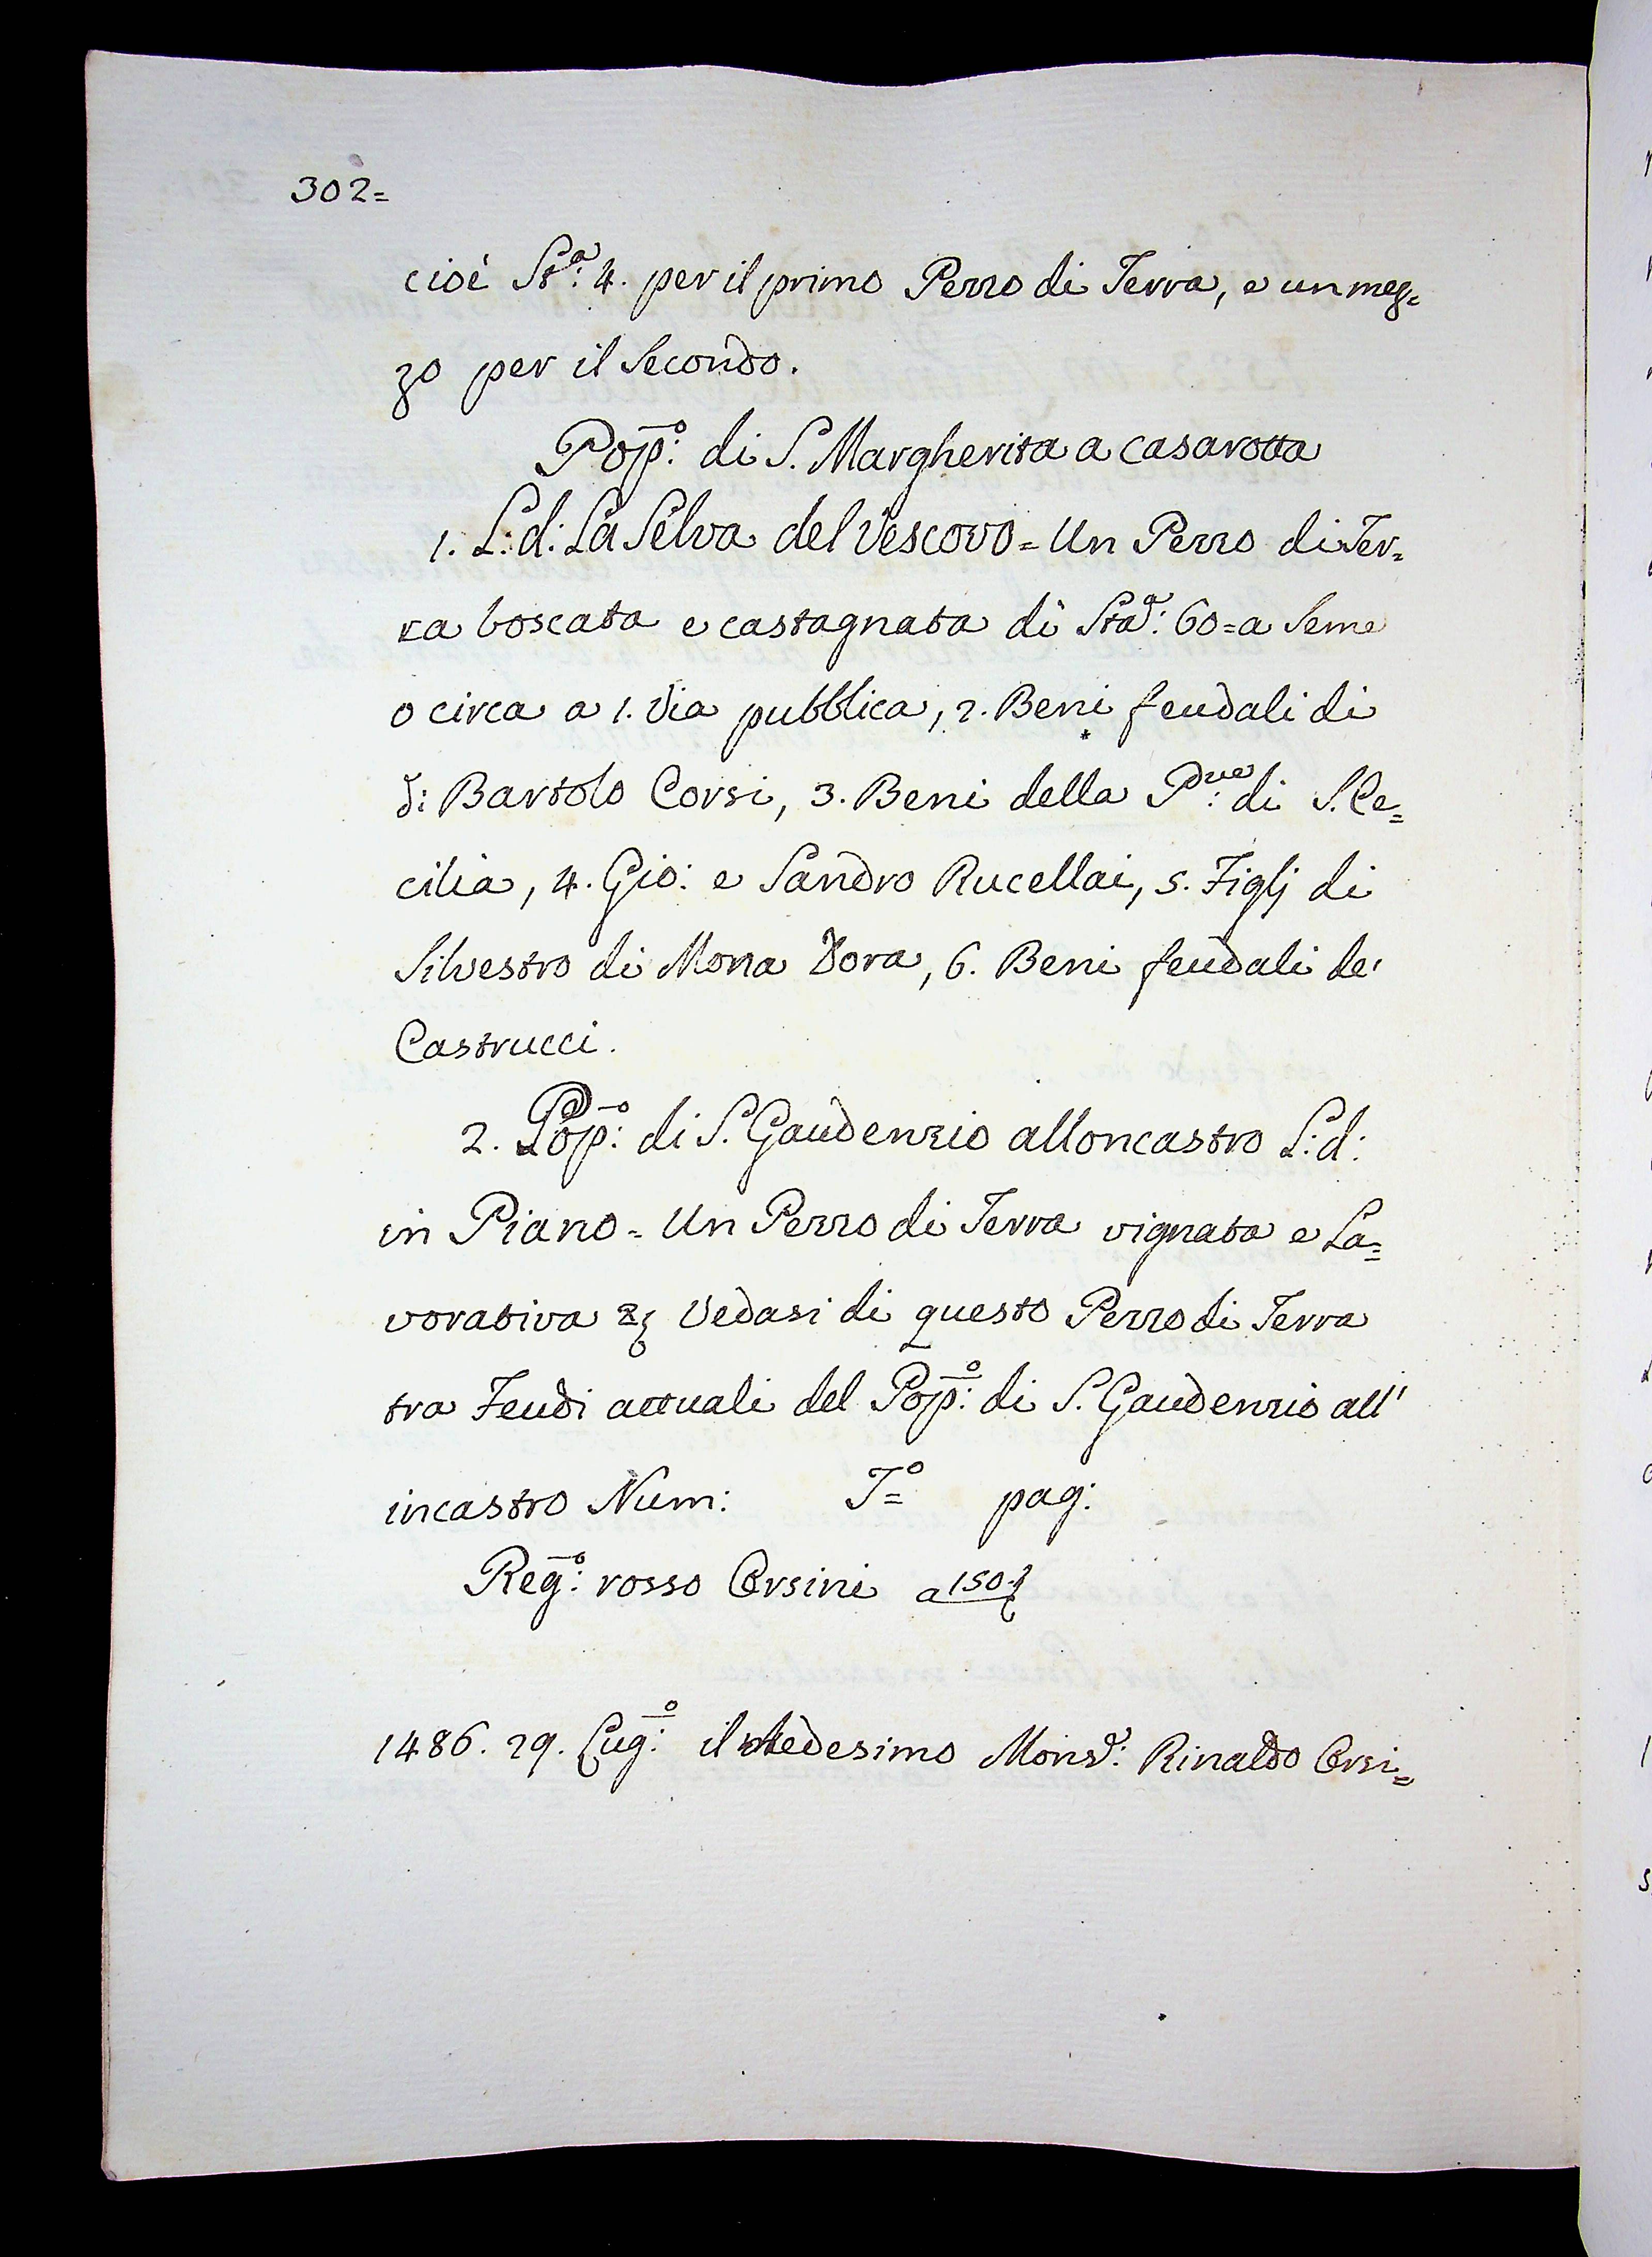 302=
cioè St:ª 4. per il primo Pezzo di Terra, e un mez=
zo per il Secondo.
Pop:º di S. Margherita a Casarotta
1. L: d: La Selva del Vescovo = Un Pezzo di Ter=
ra boscata e castagnata di Stad:ª 60= a Seme
o circa a 1. Via pubblica, 2. Beni feudali di
di Bartolo Corsi, 3. Beni della P:ve di S. Ce=
cilia, 4. Gio: e Sandro Rucellai, 5. Figlj di
Silvestro di Mona Dora, 6. Beni feudali de'
Castrucci.
2. Pop:º di S. Gaudenzio alloncastro L: d:
in Piano = Un Pezzo di Terra vignata e La=
vorativa &c Vedasi di questo Pezzo di Terra
tra Feudi attuali del Pop:º di S. Gaudenzio all'
incastro Num: Tº= pag:
Reg:º rosso Orsini a 150.
1486. 29. Lug:º il Medesimo Mons:r Rinaldo Orsi=